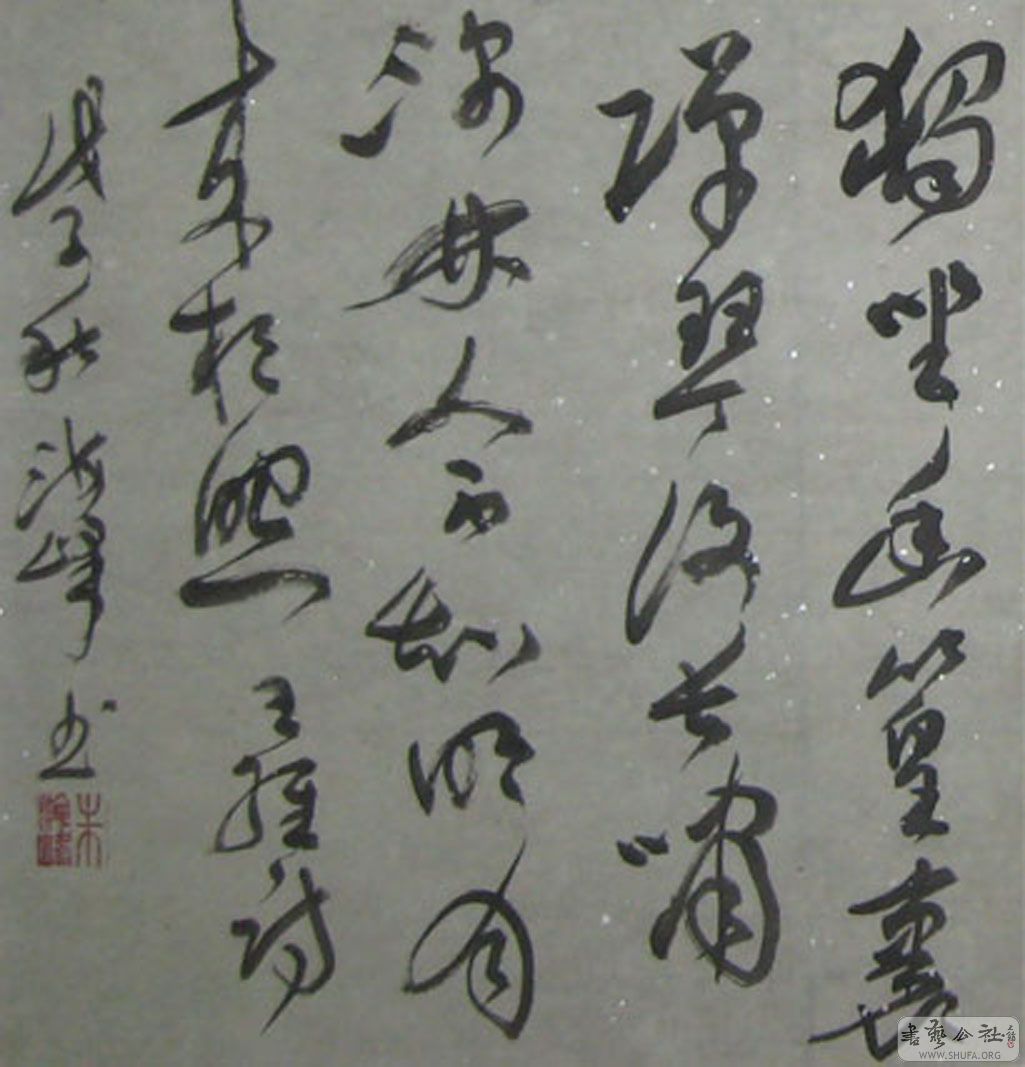 獨坐幽篁裏
彈琴復長嘯
深林人不知明月
来相照 王維詩
戊子秋海峰书
朱
書藝公社
WWW.SHUFA.ORG